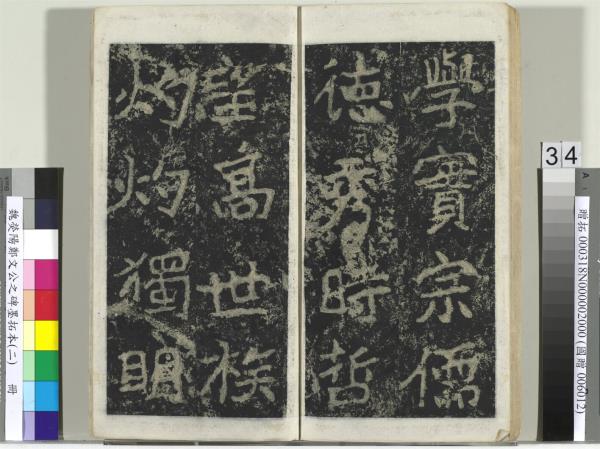 學實宗儒
德秀時哲
望高世族
灼灼獨明
34
魏滎陽鄭文公之碑墨拓本(二) 冊
贈拓 000318N000002000 (圖贈 006012)